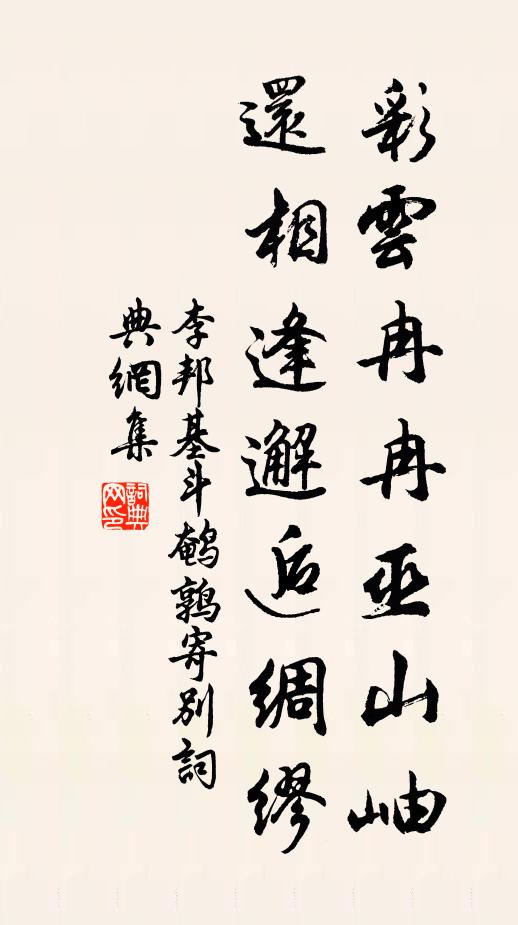 彩雲冉冉巫山岫
還相逢邂逅綢繆
李邦基斗鵪鶉寄別詞
典網集
詞典網印